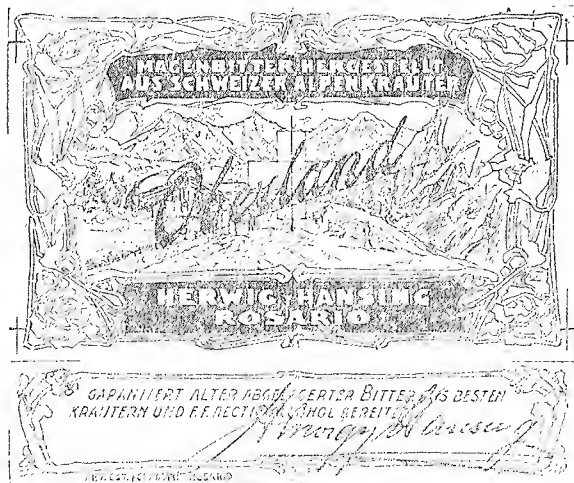 MAGENBITTER HERGESTELLT
AUS SCHWEIZER ALPENKRÄUTER
Oberland
HERWIG HANSING
ROSARIO
GARANTIERT ALTER ABGELAGERTER BITTER AUS BESTEN
KRÄUTERN UND F.F. RECTIF. ALKOHOL BEREITET